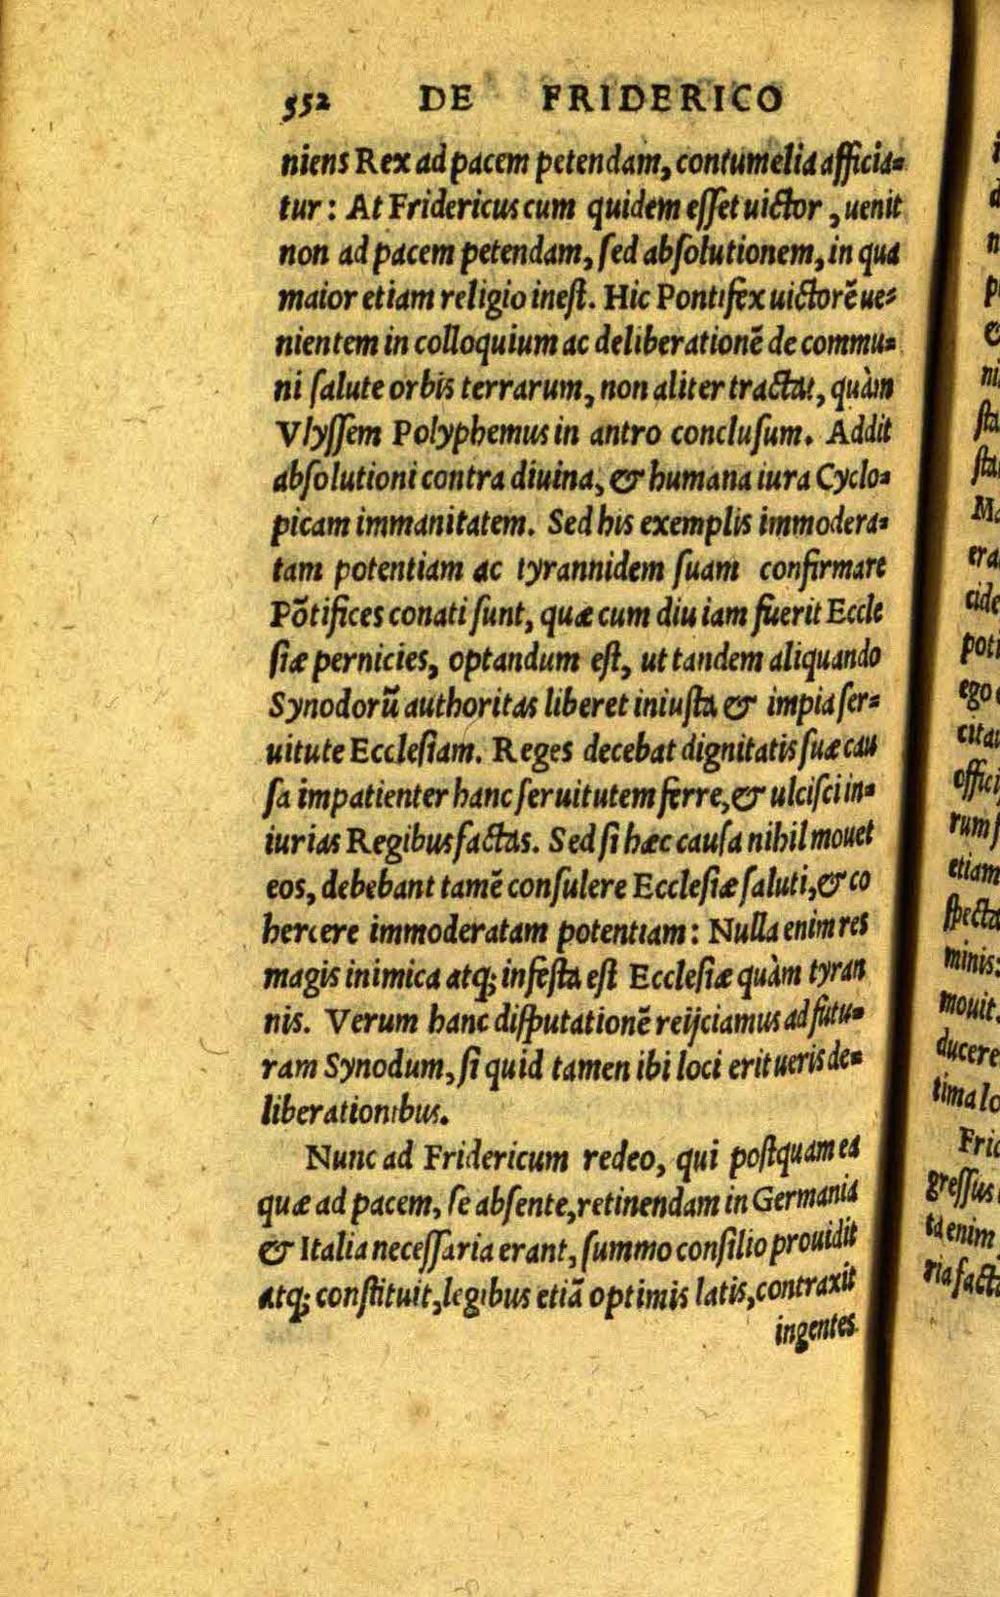 552 DE FRIDERICO
niens Rex ad pacem petendam, contumelia afficia-
tur: At Fridericus cum quidem esset uictor, uenit
non ad pacem petendam, sed absolutionem, in qua
maior etiam religio inest. Hic Pontifex uictorē ue-
nientem in colloquium ac deliberationē de commu-
ni salute orbis terrarum, non aliter tractat, quàm
Vlyssem Polyphemus in antro conclusum. Addit
absolutioni contra diuina, & humana iura Cyclo-
picam immanitatem. Sed his exemplis immodera-
tam potentiam ac tyrannidem suam confirmare
Pōtifices conati sunt, quæ cum diu iam fuerit Eccle
siæ pernicies, optandum est, ut tandem aliquando
Synodorũ authoritas liberet iniusta & impia ser-
uitute Ecclesiam. Reges decebat dignitatis suæ cau
sa impatienter hanc seruitutem ferre, & ulcisci in-
iurias Regibus factas. Sed si hæc causa nihil mouet
eos, debebant tamē consulere Ecclesiæ saluti, & co
hercere immoderatam potentiam: Nulla enim res
magis inimica atq; infesta est Ecclesiæ quàm tyran
nis. Verum hanc disputationē reijciamus ad futu-
ram Synodum, si quid tamen ibi loci erit ueris de-
liberationibus.
Nunc ad Fridericum redeo, qui postquam ea
quæ ad pacem, se absente, retinendam in Germania
& Italia necessaria erant, summo consilio prouidit
atq; constituit, legibus etiā optimis latis, contraxit
ingentes
ni
sta
sta
era
cide
poti
ego
citat
offici
rum s
etiam
specta
minis:
mouit.
ducere
tima lo
Frid
gressus
ta enim
ria fact